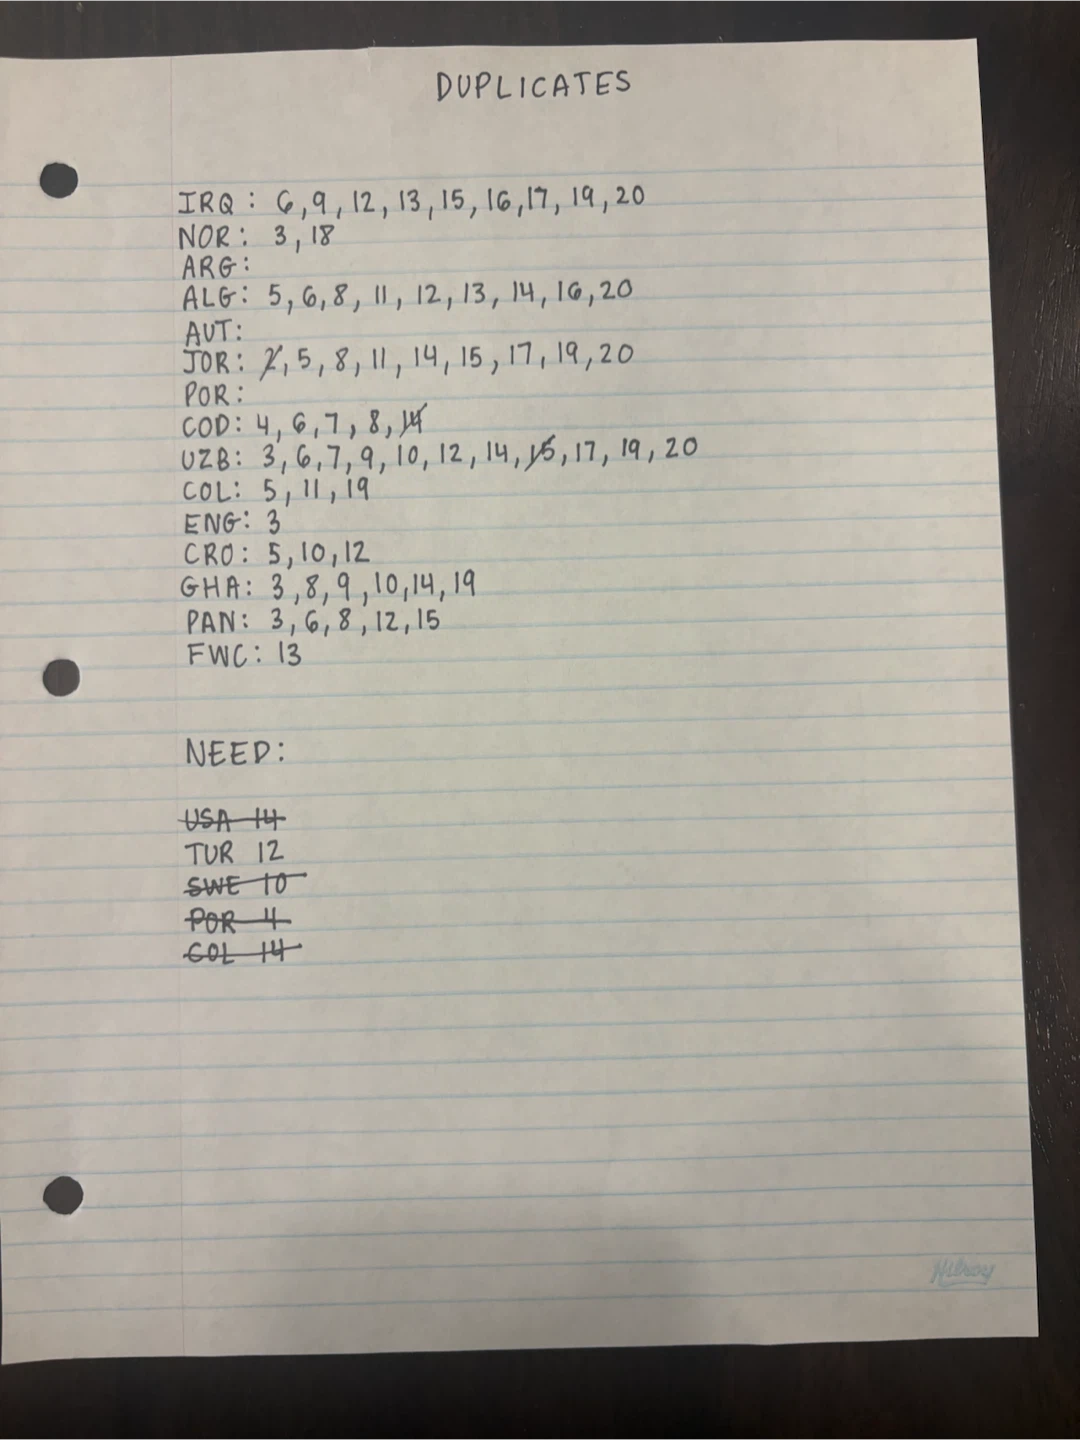 DUPLICATES
IRQ: 6,9,12,13,15,16,17,19,20
NOR: 3,18
ARG:
ALG: 5,6,8,11,12,13,14,16,20
AUT:
JOR: 2,5,8,11,14,15,17,19,20
POR:
COD: 4,6,7,8,14
UZB: 3,6,7,9,10,12,14,15,17,19,20
COL: 5,11,19
ENG: 3
CRO: 5,10,12
GHA: 3,8,9,10,14,19
PAN: 3,6,8,12,15
FWC: 13
NEED:
USA 14
TUR 12
SWE 10
POR 4
COL 14
Hilroy